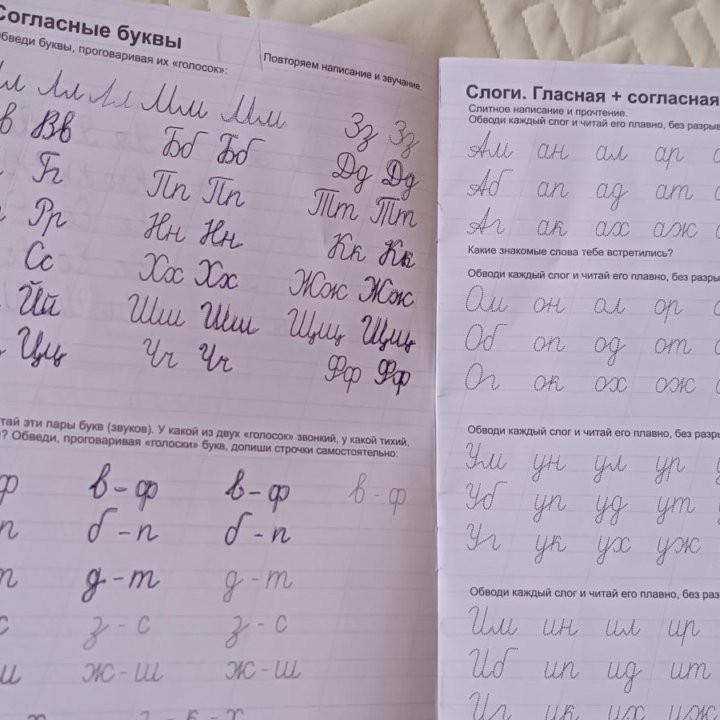 Согласные буквы
Обведи буквы, проговаривая их «голосок»:
Повторяем написание и звучание
Лл Лл Мм Мм
Зз Зз
Вв
Бб Бб
Дд Дд
Гг
Пп Пп
Тт Тт
Рр
Нн Нн
Кк Кк
Сс
Хх Хх
Жж Жж
Йй
Шш Шш
Щщ Щщ
Цц
Чч Чч
Фф Фф
тай эти пары букв (звуков). У какой из двух «голосок» звонкий, у какой тихий,
? Обведи, проговаривая «голоски» букв, допиши строчки самостоятельно:
ф в - ф в - ф в - ф
п б - п б - п
т д - т д - т
с з - с з - с
ш ж - ш ж - ш
Слоги. Гласная + согласная
Слитное написание и прочтение.
Обводи каждый слог и читай его плавно, без разрыв
Ам ан ал ар
Аб ап ад ат
Аг ак ах аж
Какие знакомые слова тебе встретились?
Обводи каждый слог и читай его плавно, без разры
Ом он ол ор
Об оп од от
Ог ок ох ож
Обводи каждый слог и читай его плавно, без разры
Ум ун ул ур
Уб уп уд ут
Уг ук ух уж
Обводи каждый слог и читай его плавно, без раз
Им ин ил ир
Иб ип ид ит
Иг ик их иж